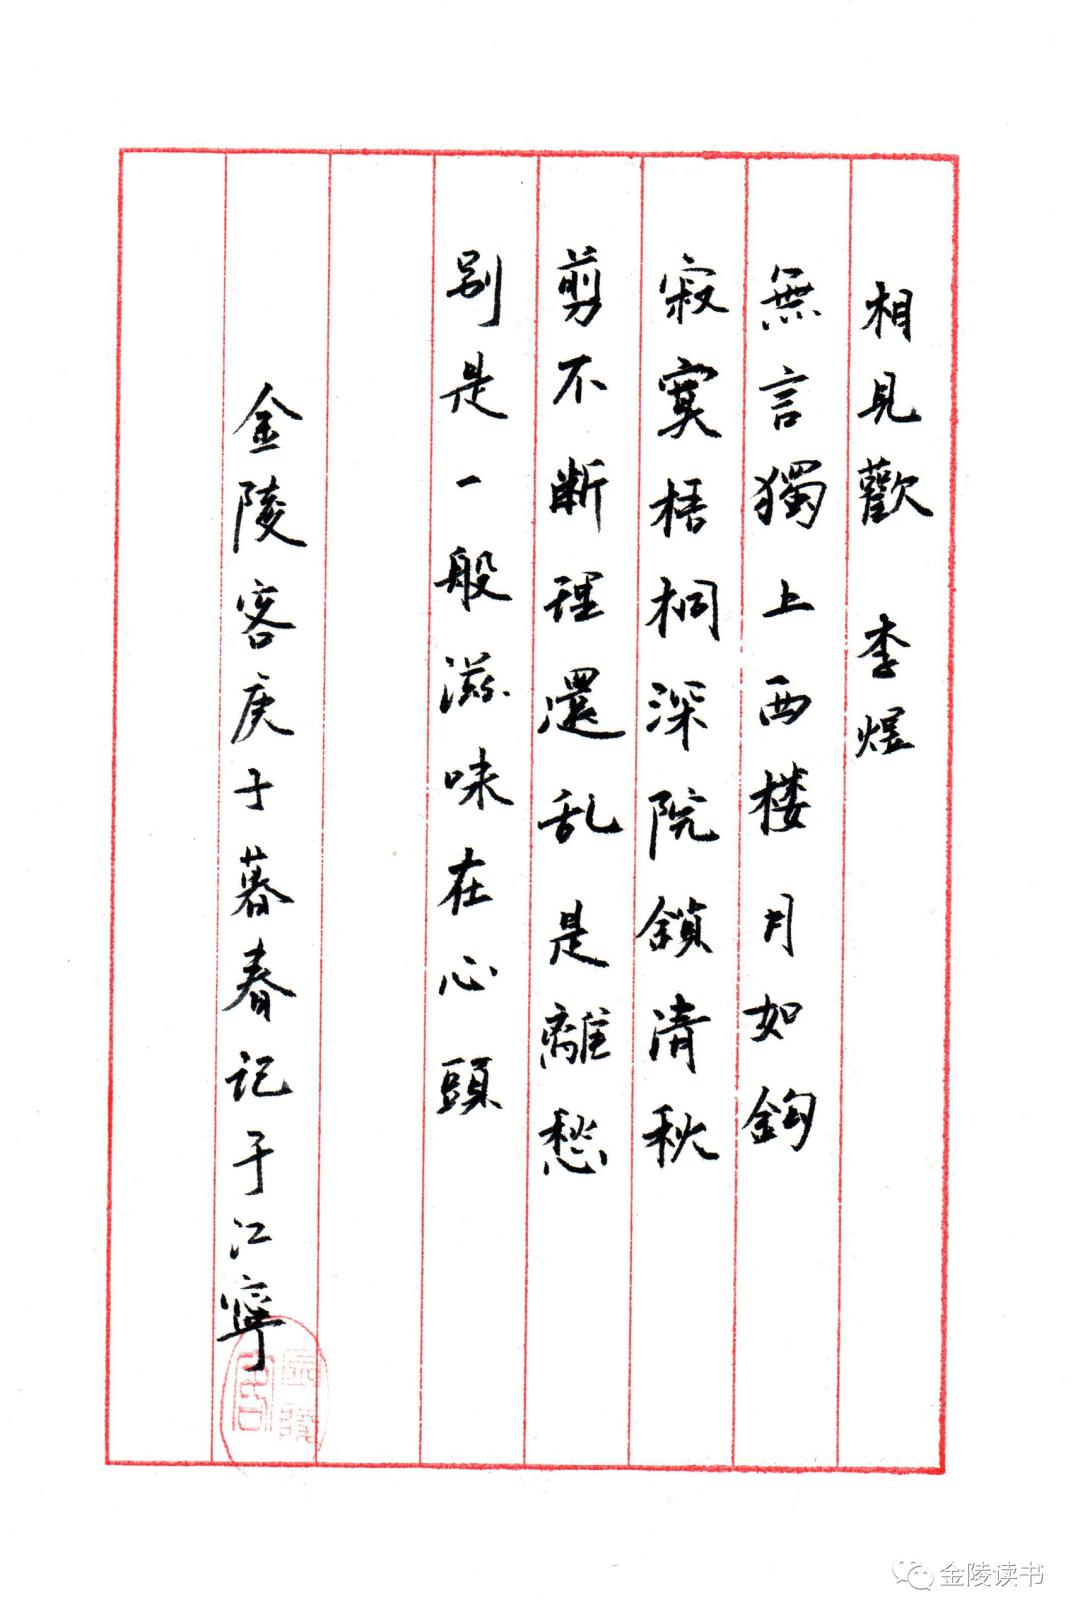 相見歡 李煜
無言獨上西楼月如鉤
寂寞梧桐深院鎖清秋
剪不断理還乱是離愁
别是一般滋味在心頭
金陵客庚子暮春记于江寧
金陵客
金陵读书